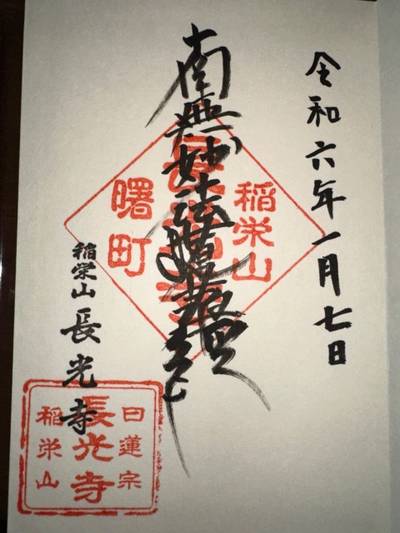 令和六年一月七日
南無妙法蓮華経
稲栄山
曙町
稲栄山 長光寺
日蓮宗
長光寺
稲栄山